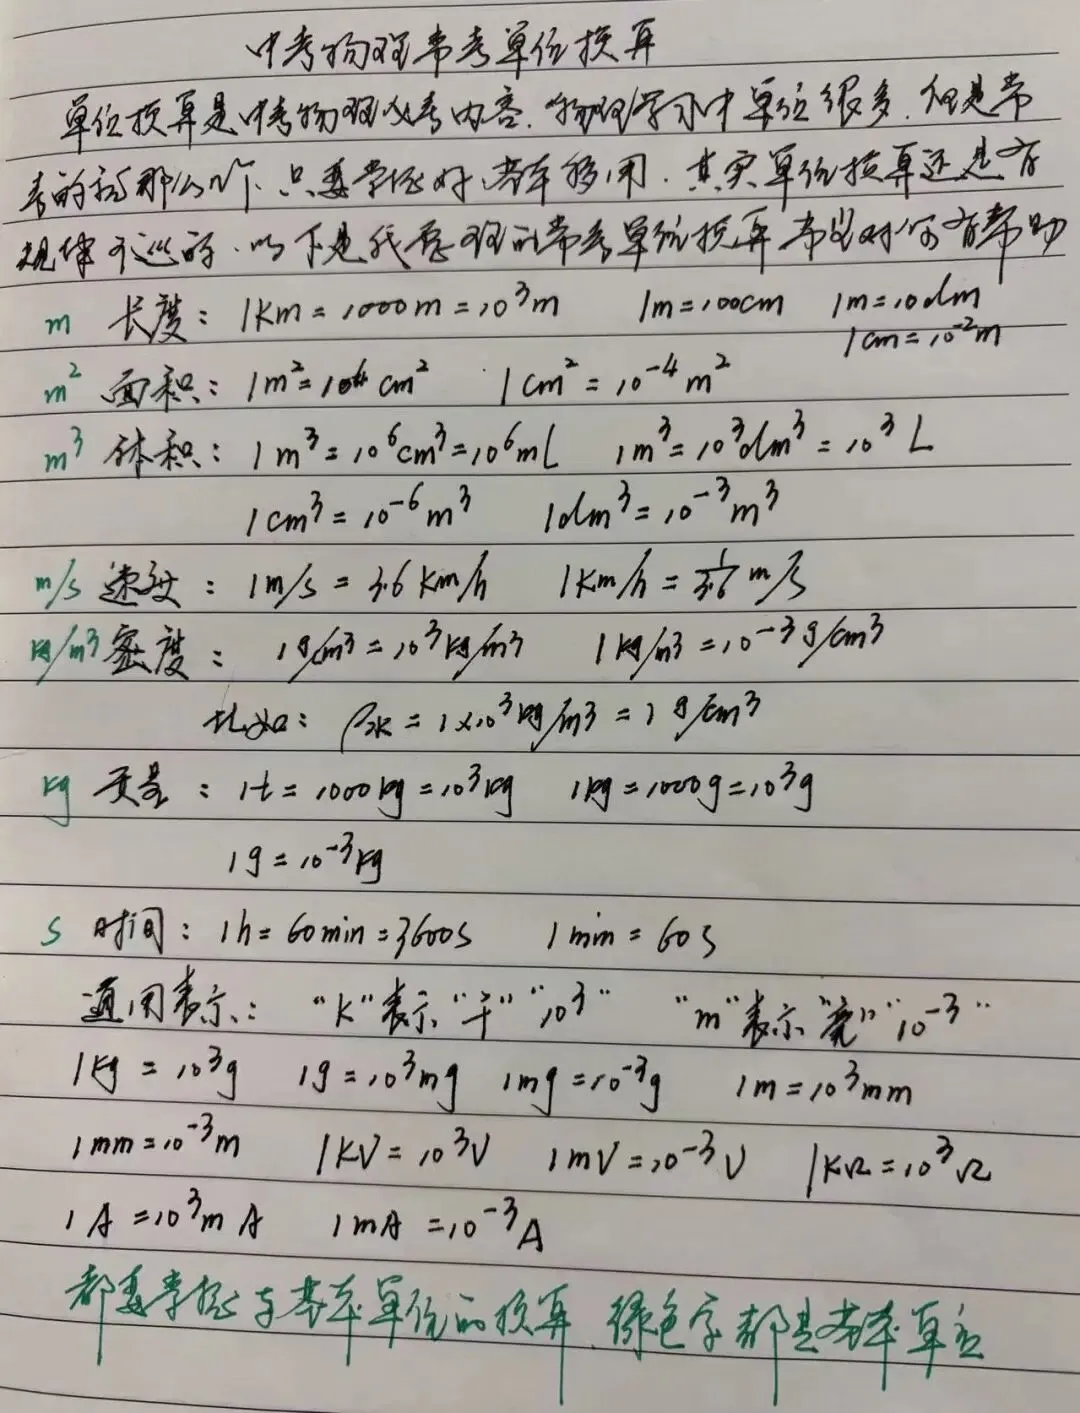 中考物理常考单位换算
单位换算是中考物理必考内容.物理学习中单位很多.但是常
考的就那么几个.只要掌握好基本够用.其实单位换算还是有
规律可巡的.以下是我整理的常考单位换算希望对你有帮助
m 长度: 1Km=1000m=10³m 1m=100cm 1m=10dm
1cm=10⁻²m
m² 面积: 1m²=10⁴cm² 1cm²=10⁻⁴m²
m³ 体积: 1m³=10⁶cm³=10⁶mL 1m³=10³dm³=10³L
1cm³=10⁻⁶m³ 1dm³=10⁻³m³
m/s 速度: 1m/s=3.6Km/h 1Km/h=1/3.6 m/s
kg/m³ 密度: 1g/cm³=10³kg/m³ 1kg/m³=10⁻³g/cm³
比如: ρ水=1×10³kg/m³=1g/cm³
kg 质量: 1t=1000kg=10³kg 1kg=1000g=10³g
1g=10⁻³kg
s 时间: 1h=60min=3600s 1min=60s
通用表示: "K"表示"千""10³" "m"表示"毫""10⁻³"
1Kg=10³g 1g=10³mg 1mg=10⁻³g 1m=10³mm
1mm=10⁻³m 1KV=10³V 1mV=10⁻³V 1KΩ=10³Ω
1A=10³mA 1mA=10⁻³A
都要掌握与基本单位的换算.绿色字都是基本单位